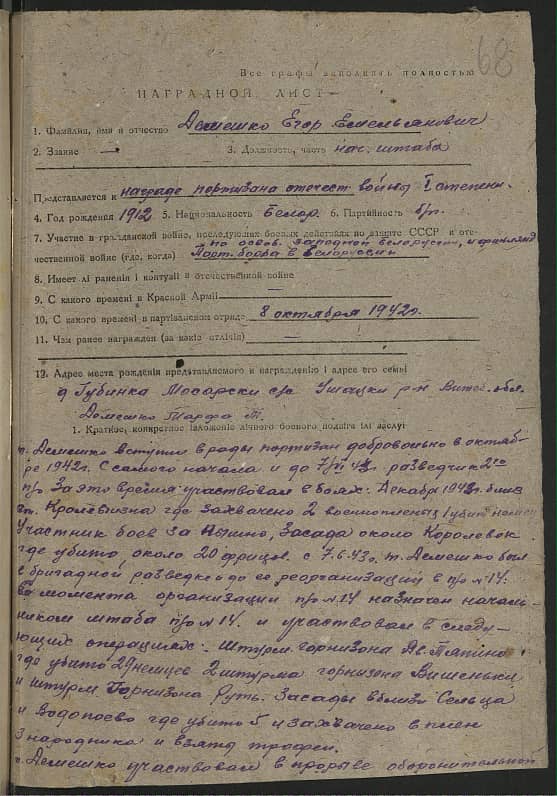 68
Все графы заполнять полностью
НАГРАДНОЙ ЛИСТ
1. Фамилия, имя и отчество Демешко Егор Емельянович
2. Звание — 3. Должность, часть нач. штаба
Представляется к награде партизана отечест войны I степени.
4. Год рождения 1912 5. Национальность Белор. 6. Партийность б/п.
7. Участие в гражданской войне, последующих боевых действиях по защите СССР и оте-
по освоб. западной Белоруссии, и финлянд
чественной войне (где, когда) Парт. борба в Белоруссии
8. Имеет лі ранения і контузіи в отечественной войне —
9. С какого времени в Красной Армії —
10. С какого времени в партизанском отряде 8 октября 1942г.
11. Чем ранее награжден (за какіе отлічія) —
12. Адрес места рождения представляемого к награждению і адрес его семьі
д Губинка Мосарски с/с Ушацки р-н Витеб. обл.
Демешко Марфа
1. Краткое, конкретное ізложеніе лічного боевого подвіга ілі заслуг
т. Демешко вступил в ряды партизан добровольно в октяб-
ре 1942г. С самого начала и до разведчик 2го
п/о За это время участвовал в боях: Декабрь 1942г. близ
ст. Кролевизна где захвачено 2 военнопленых 1 убит немец
Участник боев за Пышно, Засада около Королевок
где убито около 20 фрицов. с 7.6.43г. т. Демешко был
в бригадной разведке и до ее реорганизации в п/о №14.
со момента организации п/о №14 назначен началь-
ником штаба п/о №14. и участвовал в следу-
ющих операциях: Штурм горнизона Дв. Тяпино
где убито 29 немцев 2 штурма горнизона Вишеньки
и штурм Горнизона Руть. Засады вблизи Сельца
и Водопоево где убито 5 и захвачено в плен
3 народника и взяты трофеи.
т. Демешко участвовал в прорыве оборонительной